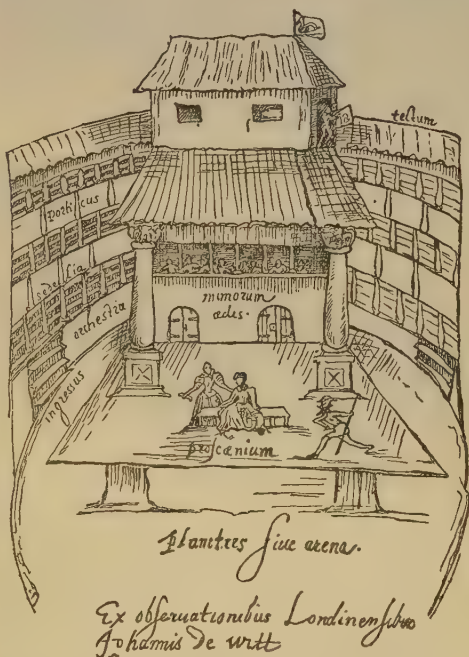 tectum
porticus
sedilia
orchestra
ingressus
mimorum
ædes.
proscænium
Planities siue arena.
Ex obseruationibus Londinensibus
Johannis De witt